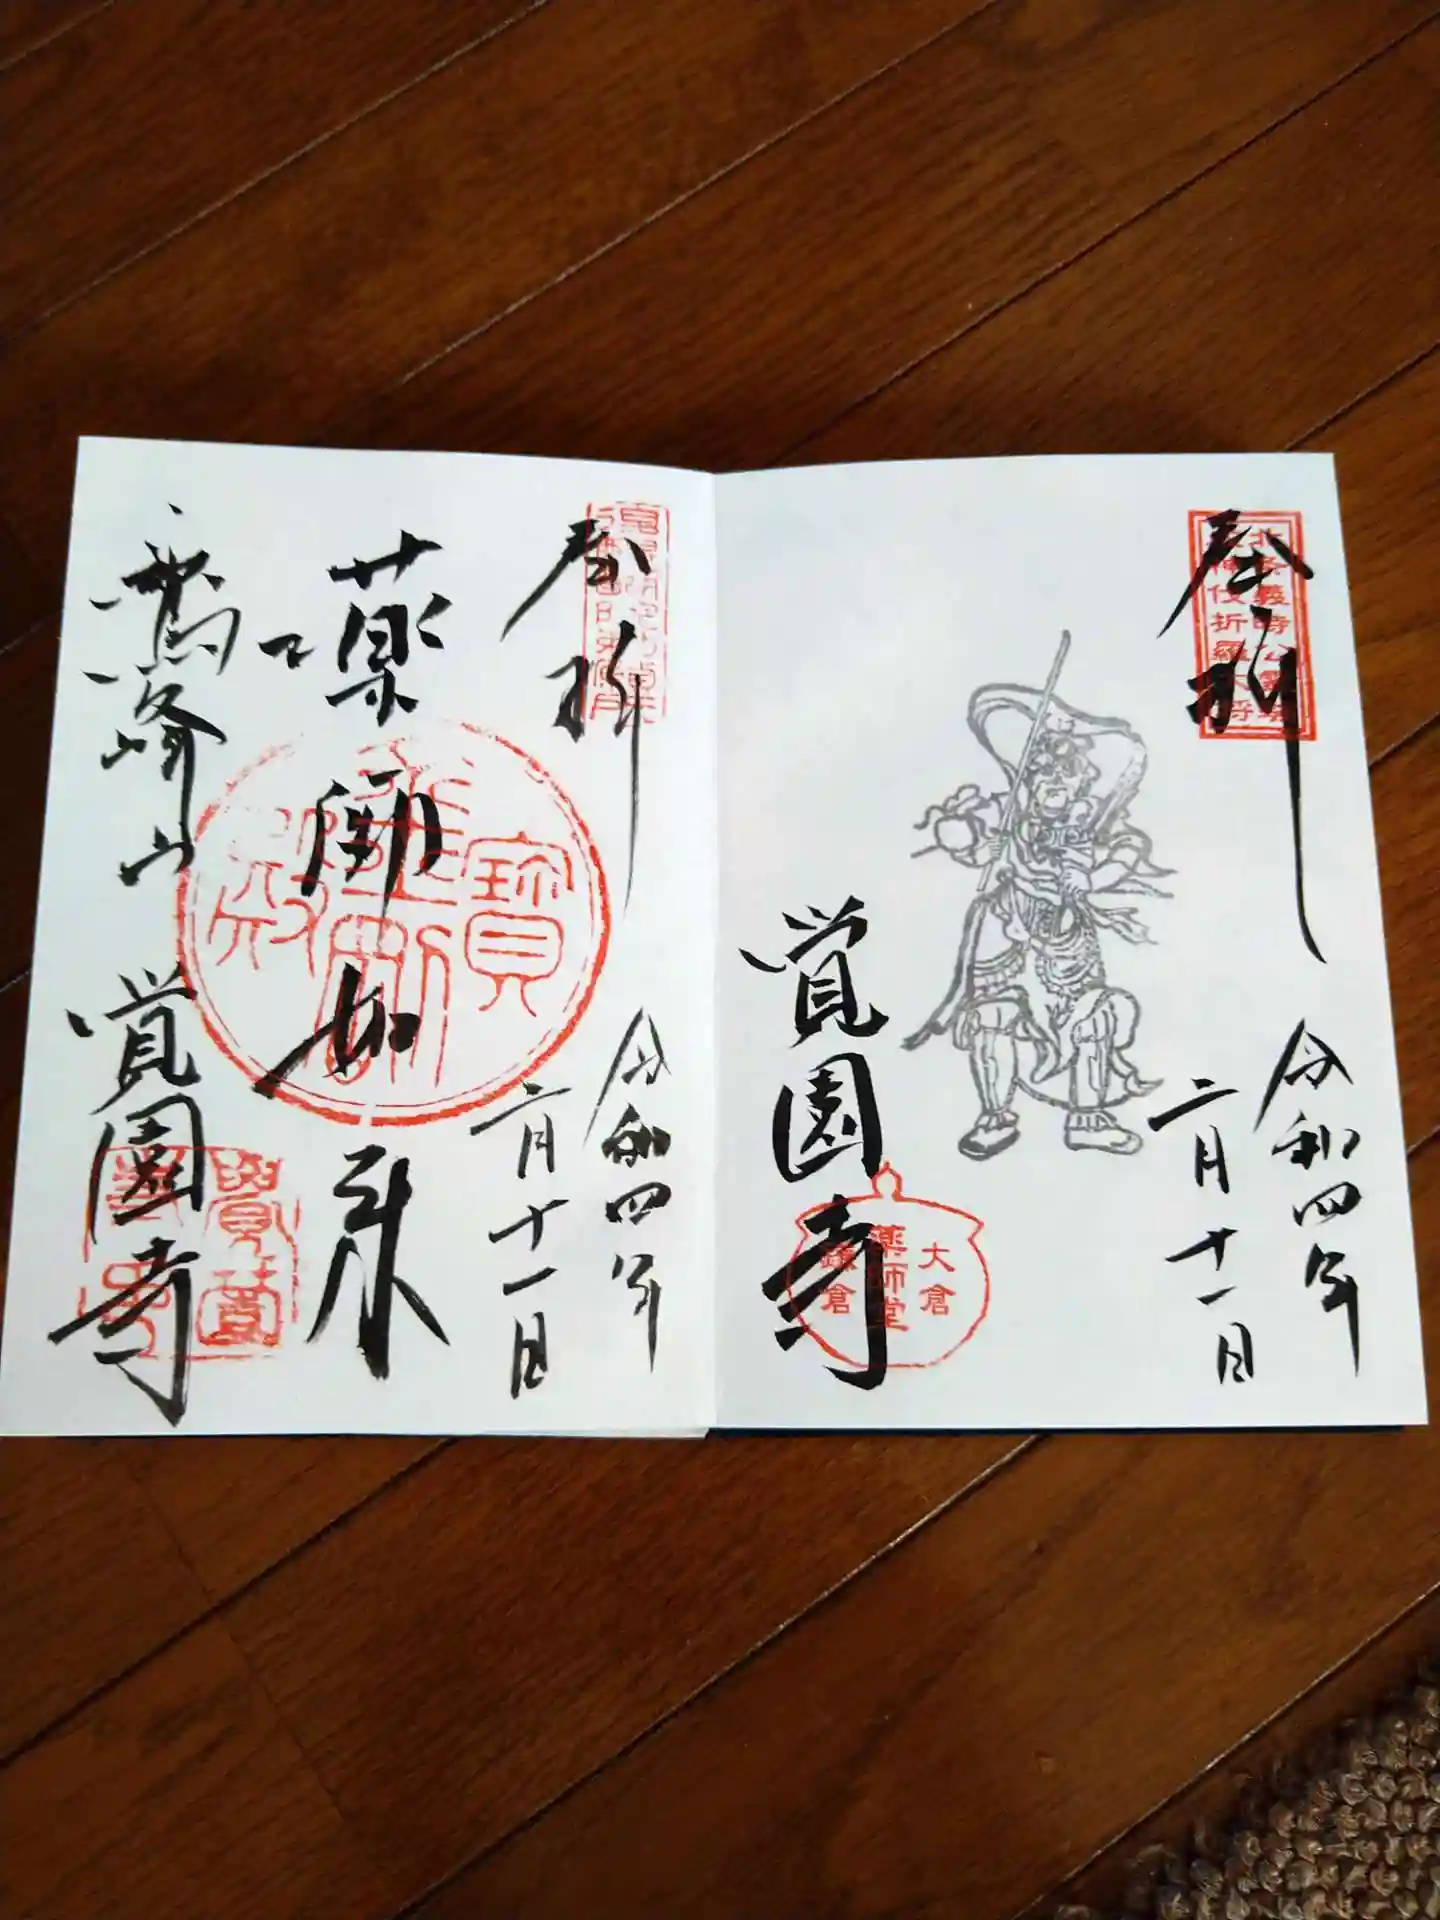 奉拝
北条義時公霊夢
戌神伐折羅大将
令和四年
二月十一日
覚園寺
大倉
薬師堂
鎌倉
奉拝
令和四年
二月十一日
薬師如来
寶
殿
鷲峰山
覚園寺
覺園